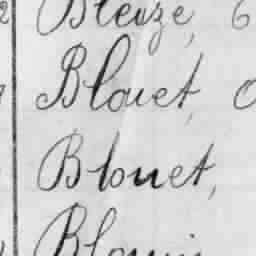 Bleuze, 6
Blouet,
Blouet,
Blouin